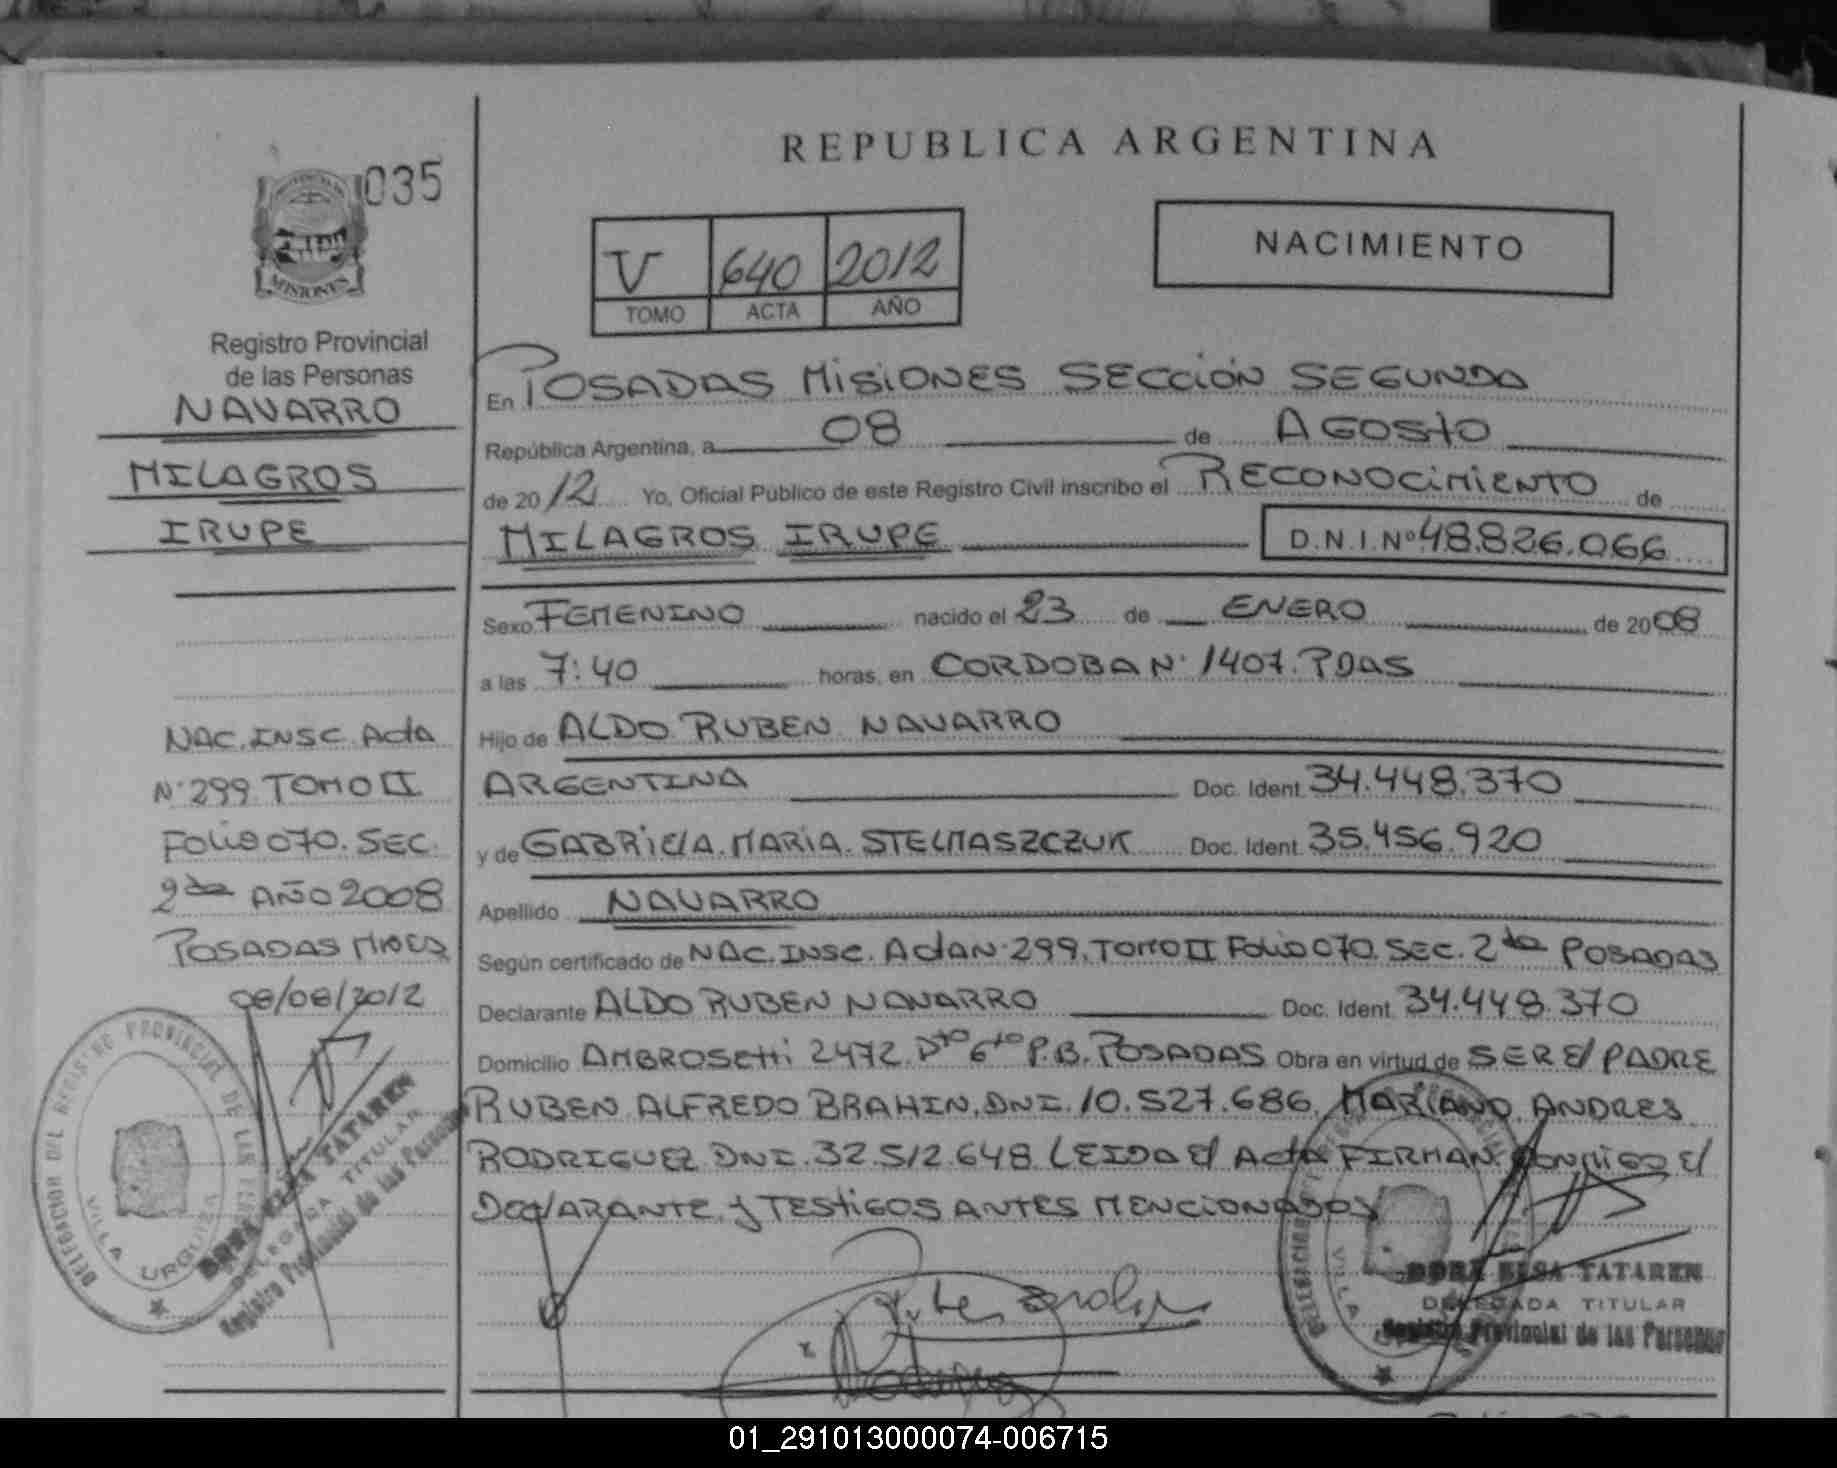 REPUBLICA ARGENTINA
035
PROVINCIA DE
MISIONES
V 640 2012
TOMO ACTA AÑO
NACIMIENTO
Registro Provincial
de las Personas
NAVARRO
MILAGROS
IRUPE
NAC. INSC. Acta
N° 299 TOMO II
Folio 070. SEC.
2da AÑO 2008
POSADAS Mnes
08/08/2012
DELEGACION DEL REGISTRO PROVINCIAL DE LAS PERSONAS
VILLA URQUIZA
DORA ELSA TATAREN
DELEGADA TITULAR
Registro Provincial de las Personas
En POSADAS MISIONES SECCIÓN SEGUNDA
República Argentina, a 08 de AGOSTO
de 2012 Yo, Oficial Público de este Registro Civil inscribo el RECONOCIMIENTO de
MILAGROS IRUPE D.N.I. Nº 48.826.066
Sexo FEMENINO nacido el 23 de ENERO de 2008
a las 7:40 horas, en CORDOBA N° 1407. PDAS
Hijo de ALDO RUBEN NAVARRO
ARGENTINA Doc. Ident. 34.448.370
y de GABRIELA. MARIA. STELMASZCZUK Doc. Ident. 35.456.920
Apellido NAVARRO
Según certificado de NAC. INSC. Acta N° 299. TOMO II Folio 070. SEC. 2da POSADAS
Declarante ALDO RUBEN NAVARRO Doc. Ident. 34.448.370
Domicilio AMBROSETTI 2472. Dto 6to P.B. POSADAS Obra en virtud de SER El PADRE
RUBEN ALFREDO BRAHIN. DNI. 10.527.686. MARIANO ANDRES
RODRIGUEZ DNI. 32.512.648 LEIDA El Acta FIRMAN CONMIGO El
DEClARANTE y TESTIGOS ANTES MENCIONADOS
DORA ELSA TATAREN
DELEGADA TITULAR
Registro Provincial de las Personas
01_291013000074-006715